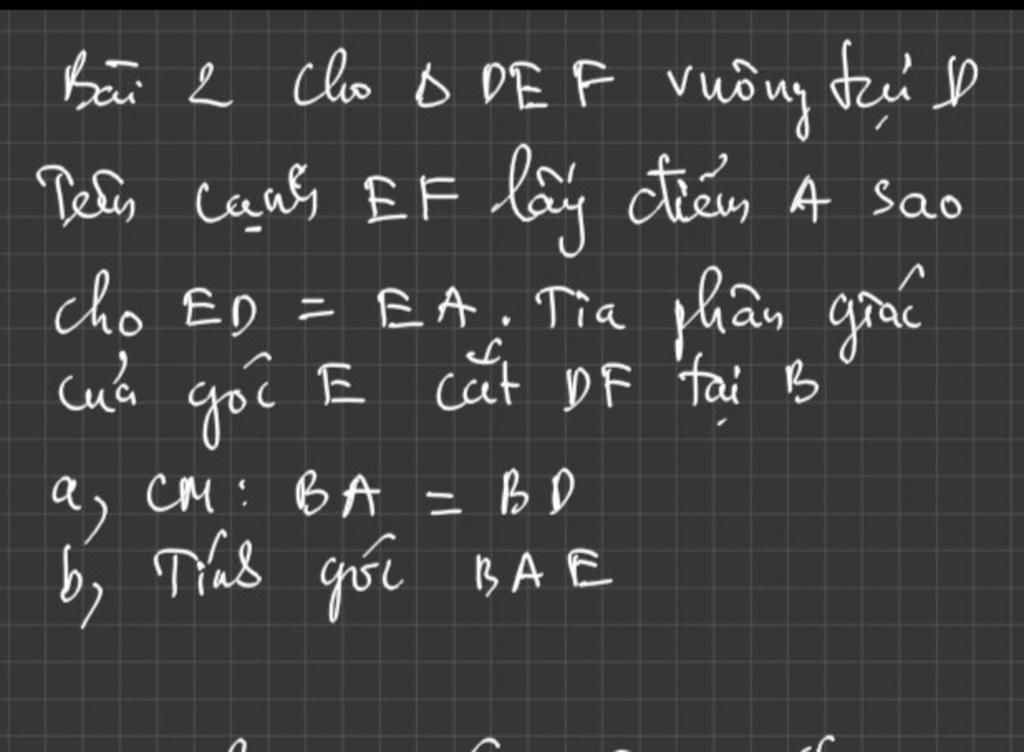 Bài 2 Cho Δ DEF vuông tại D
Trên cạnh EF lấy điểm A sao
cho ED = EA. Tia phân giác
của góc E cắt DF tại B
a, CM: BA = BD
b, Tính góc BAE